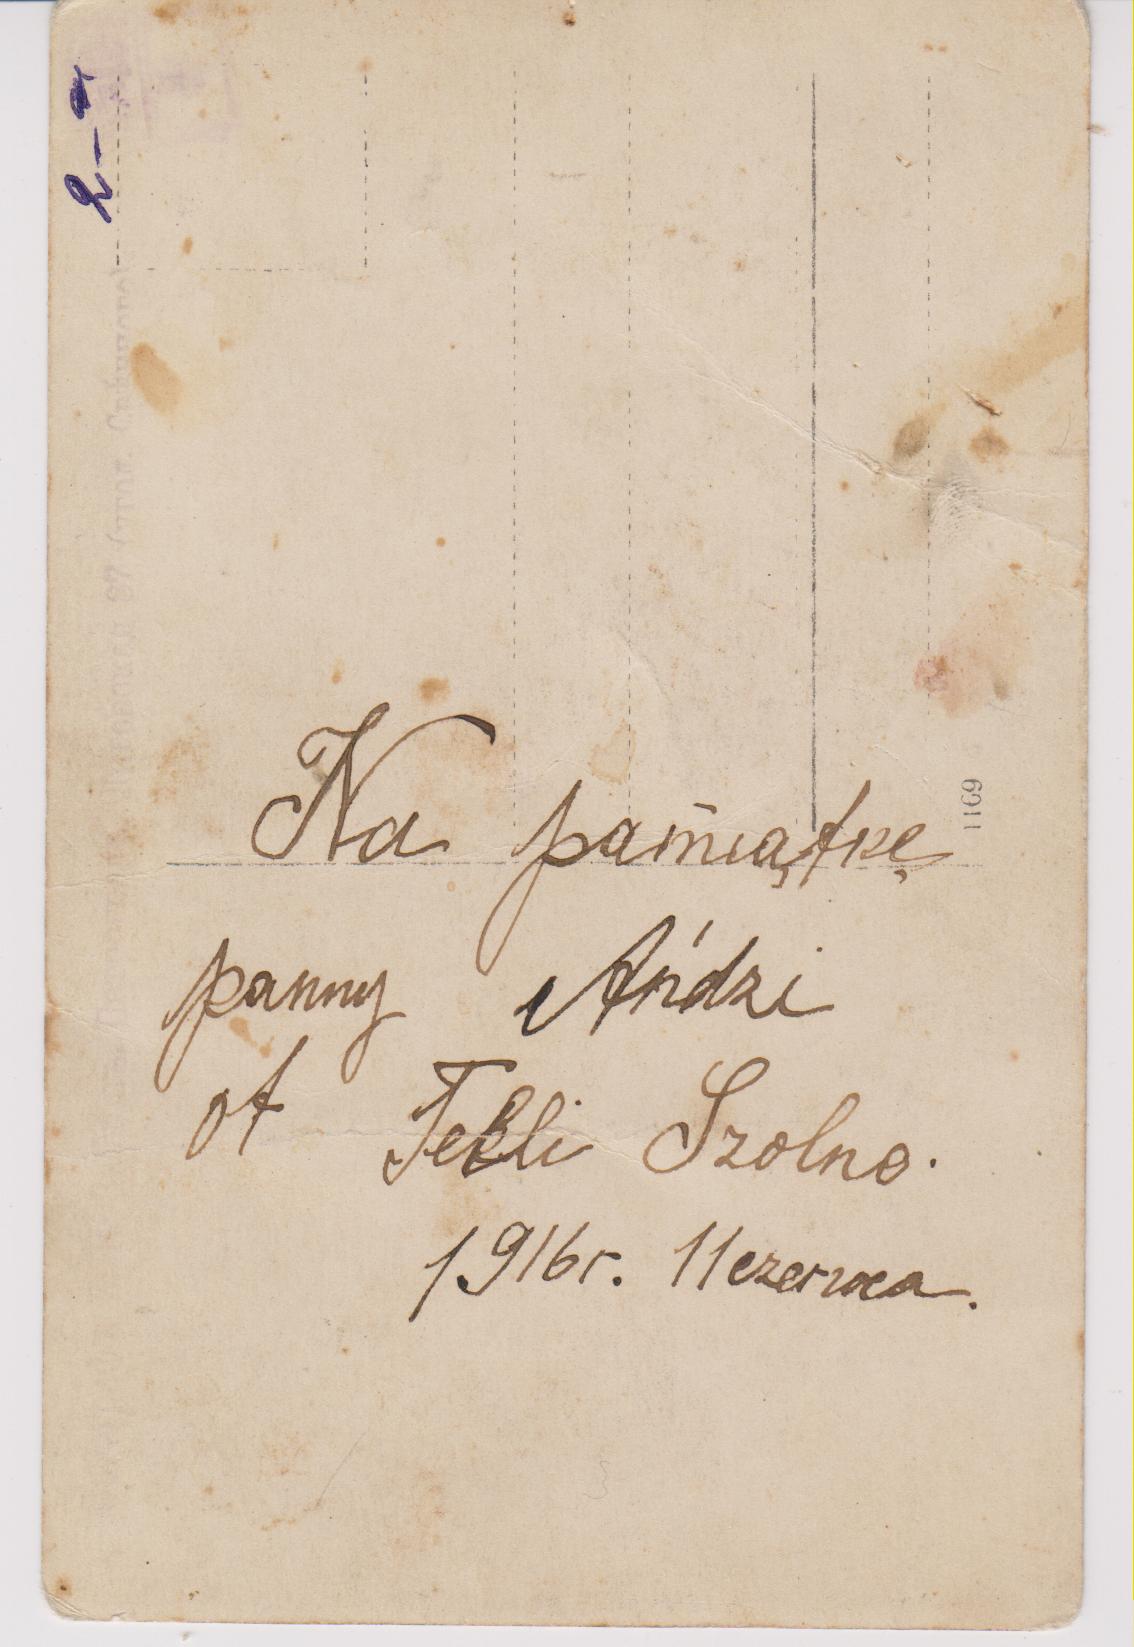 2-
1169
Na pamiątkę
panny Ańdzi
ot Tekli Szolno.
1916 r. 11 czerwca.